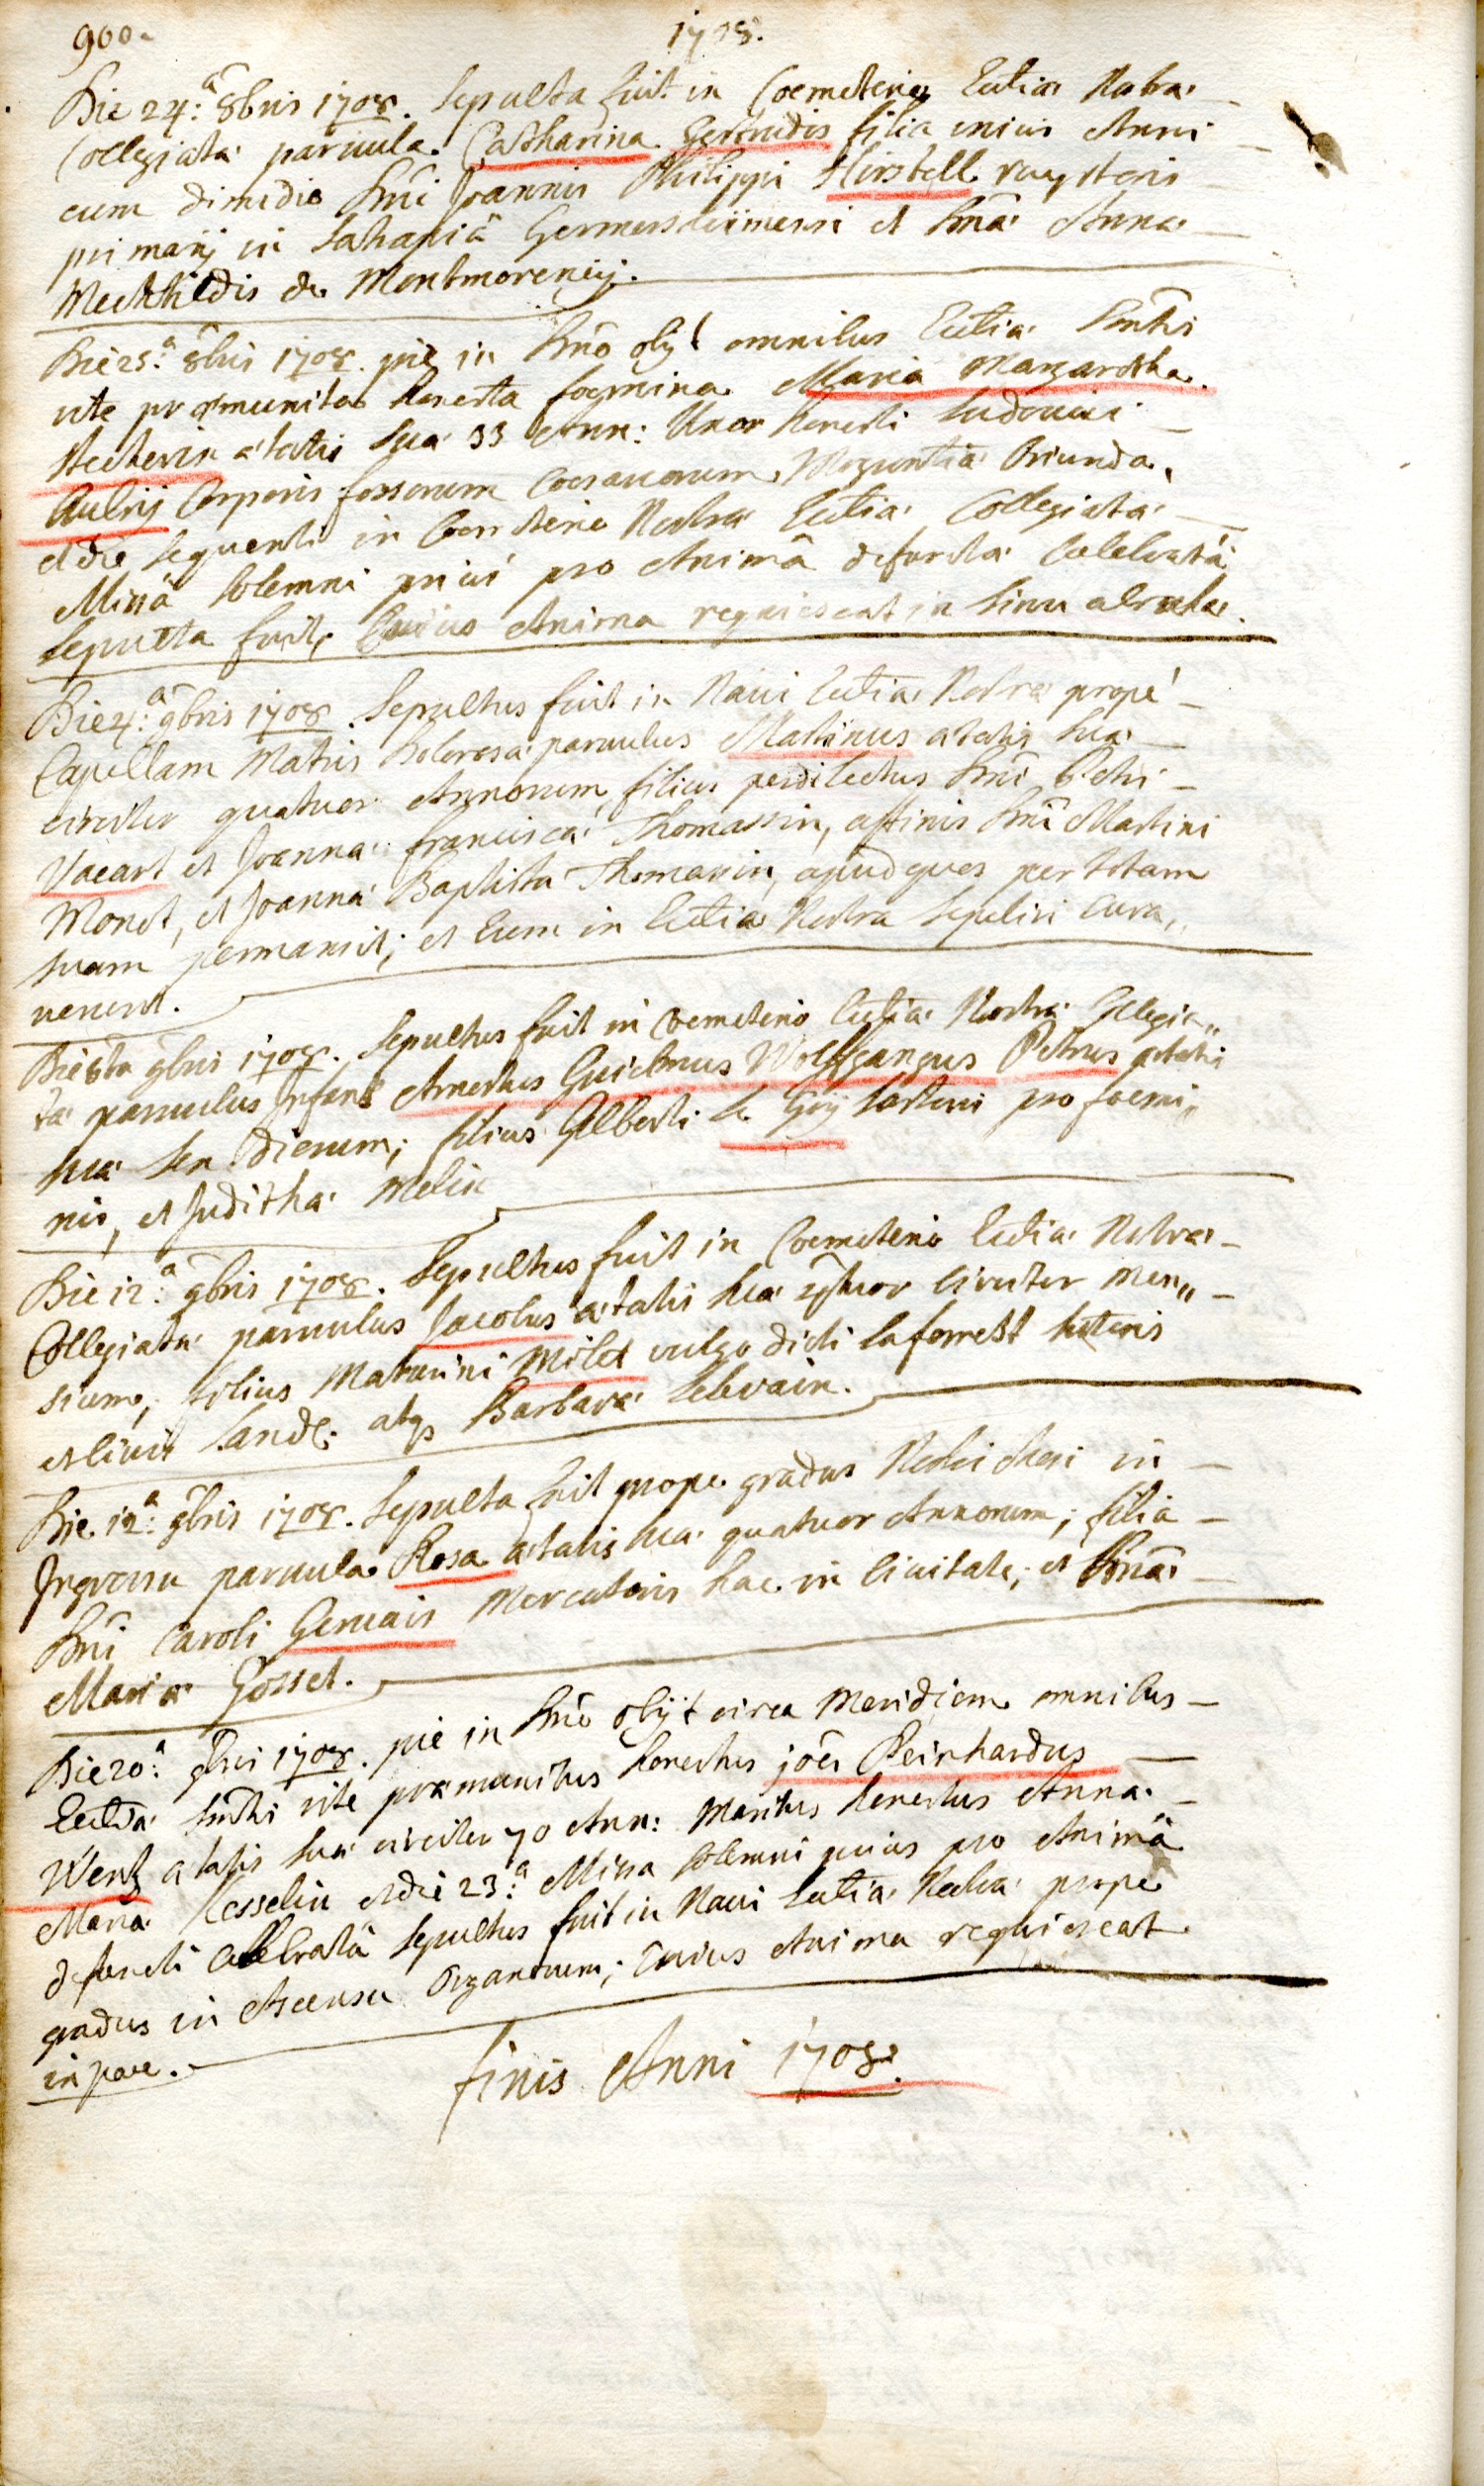 900.
1708.
Die 24.ª 8bris 1708. Sepulta fuit in Coemeterio Eccliæ Nostræ
Collegiatæ paruula Catharina Gertrudis filia unius Anni
cum dimidio Dni Joannis Philippi Hirstell
primarij in Satrapiâ Germersheimensi et Dnæ Annæ
Mechtildis de Montmorency.
Die 25.ª 8bris 1708. pie in Dno obijt omnibus Eccliæ Smtis
rite præmunita honesta foemina Maria Margaretha
Heckerin ætatis suæ 33 Ann: Uxor honesti Ludouici
Aubrij Corporis fossorum Coesareorum, Moguntiæ Oriunda,
et die sequenti in Coemeterio Nostræ Eccliæ Collegiatæ
Missâ solemni prius pro Animâ defunctæ Celebratâ
Sepulta fuit, Cuius Anima requiescat in sinu abrahæ.
Die 4.ª 9bris 1708. Sepultus fuit in Naui Eccliæ Nostræ propè
Capellam Matris Dolorosæ paruulus Martinus ætatis suæ
circiter quatuor Annorum, filius perdilectus Dni Petri
Vacart et Joannæ franciscæ Thomassin, affinis Dni Martini
Monet, et Joannæ Baptistæ Thomassin, apud quos per totam
suam permansit; et Eum in Ecclia Nostra Sepeliri Cura,,
uerunt.
Die 6ta 9bris 1708. Sepultus fuit in Coemeterio Eccliæ Nostræ Collegia,,
tæ paruulus Infans Ernestus Guidonus Wolffgangus Petrus ætatis
suæ sex dierum; filius Alberti Le Goy Sartoris pro foemi,,
nis, et Judithæ Melin
Die 12.ª 9bris 1708. Sepultus fuit in Coemeterio Eccliæ Nostræ
Collegiatæ paruulus Jacobus ætatis suæ qtuor Circiter Men,,
sium, filius Maturini Milet vulgo dicti laforrest sutoris
et Ciuis Land: atq Barbaræ Lebrain.
Die 12.ª 9bris 1708. Sepulta fuit prope gradus Nostri Chori in
Ingressu paruula Rosa ætatis suæ quatuor Annorum; filia
Dni Caroli Geruais Mercatoris hac in Ciuitate, et Dnæ
Mariæ Gosset.
Die 20.ª 9bris 1708. piè in Dno obijt circa Meridiem omnibus
Eccliæ Smtis rite præmunitus honestus joës Reinhardus
Wentz ætatis suæ circiter 70 Ann: Maritus honestus Annæ
Mariæ Kesselin et die 23.ª Missa solemni prius pro Animâ
defuncti Celebratâ Sepultus fuit in Naui Eccliæ Nostræ propè
gradus in Ascensu Organorum; Cuius Anima requiescat
in pace.
finis Anni 1708.